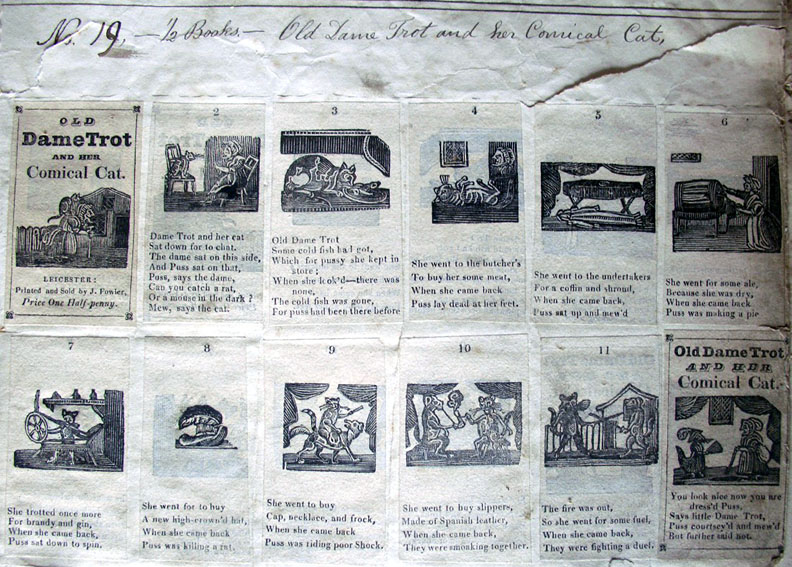 No. 19, — ½ Books. — Old Dame Trot and her Comical Cat,
OLD
Dame Trot
AND HER
Comical Cat.
LEICESTER:
Printed and Sold by J. Fowler,
Price One Half-penny.
2
Dame Trot and her cat
Sat down for to chat.
The dame sat on this side,
And Puss sat on that,
Puss, says the dame,
Can you catch a rat,
Or a mouse in the dark ?
Mew, says the cat.
3
Old Dame Trot
Some cold fish had got,
Which for pussy she kept in
store ;
When she look'd—there was
none,
The cold fish was gone,
For puss had been there before
4
She went to the butcher's
To buy her some meat,
When she came back
Puss lay dead at her feet.
5
She went to the undertakers
For a coffin and shroud,
When she came back,
Puss sat up and mew'd
6
She went for some ale,
Because she was dry,
When she came back
Puss was making a pie
7
She trotted once more
For brandy and gin,
When she came back,
Puss sat down to spin.
8
She went for to buy
A new high-crown'd hat,
When she came back
Puss was killing a rat.
9
She went to buy
Cap, necklace, and frock,
When she came back
Puss was riding poor Shock.
10
She went to buy slippers,
Made of Spanish leather,
When she came back,
They were smonking together.
11
The fire was out,
So she went for some fuel,
When she came back,
They were fighting a duel.
Old Dame Trot
AND HER
Comical Cat.
You look nice now you are
dress'd Puss,
Says little Dame Trot,
Puss courtsey'd and mew'd
But further said not.